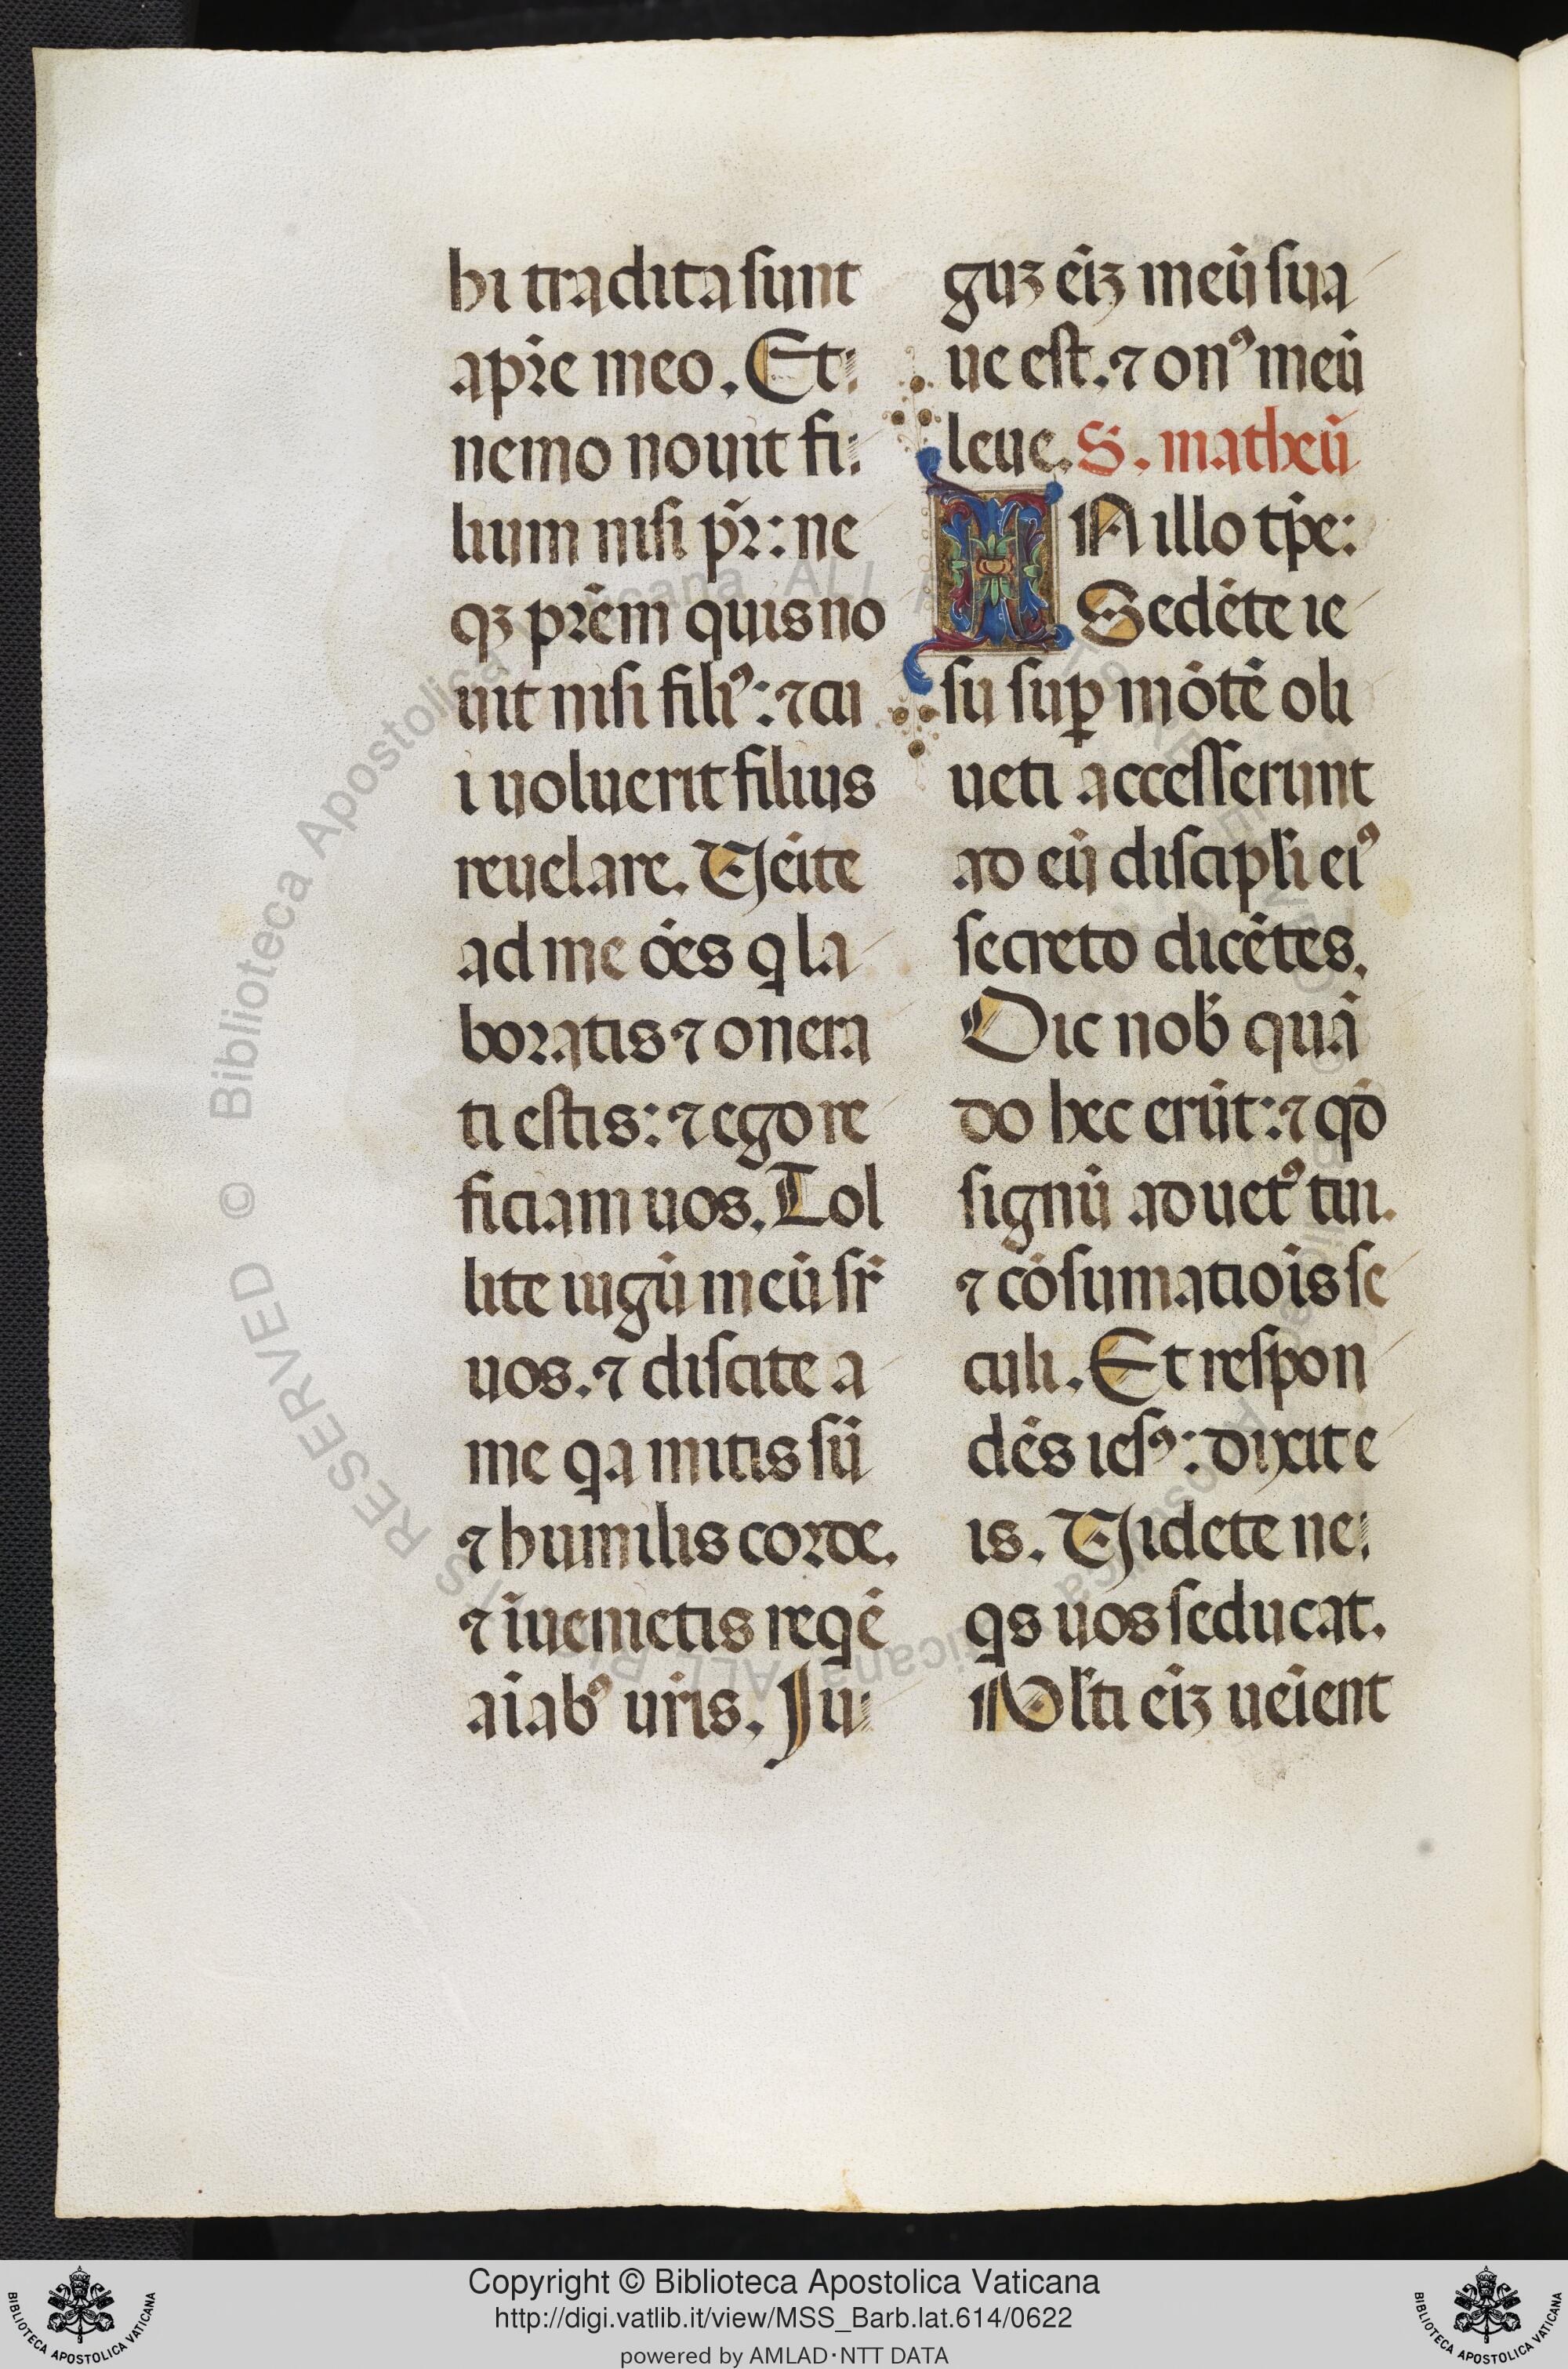 bi tradita sunt
a pr̃e meo. Et
nemo nouit fi
lium nisi pr̃: ne
qꝫ prẽm quis no
uit nisi filiꝰ: ⁊ cu
i uoluerit filius
reuelare. Ueĩte
ad me oẽs q la
boratis ⁊ onera
ti estis: ⁊ ego re
ficiam uos. Tol
lite iugũ meũ sr̃
uos. ⁊ discite a
me qa mitis sũ
⁊ humilis corde.
⁊ ĩuenietis reqẽ
aĩabꝰ ur̃is. Iu
guꝫ eĩꝫ meũ sua
ue est. ⁊ onꝰ meũ
leue. S. matheũ
IN illo tp̃e:
Sedẽte ie
su suꝑ mõtẽ oli
ueti accesserunt
ad eũ discipl̃i eiꝰ
secreto dicẽtes.
Dic nob̃ quã
do hec erũt: ⁊ qd̃
signũ aduẽtꝰ tui.
⁊ cõsumatiõis se
culi. Et respon
dẽs iesꝰ: dixit e
is. Uidete ne
qs uos seducat.
Ml̃ti eĩꝫ ueĩent
© Biblioteca Apostolica Vaticana ALL RIGHTS RESERVED
Copyright © Biblioteca Apostolica Vaticana
http://digi.vatlib.it/view/MSS_Barb.lat.614/0622
powered by AMLAD·NTT DATA
BIBLIOTECA APOSTOLICA VATICANA
BIBLIOTECA APOSTOLICA VATICANA